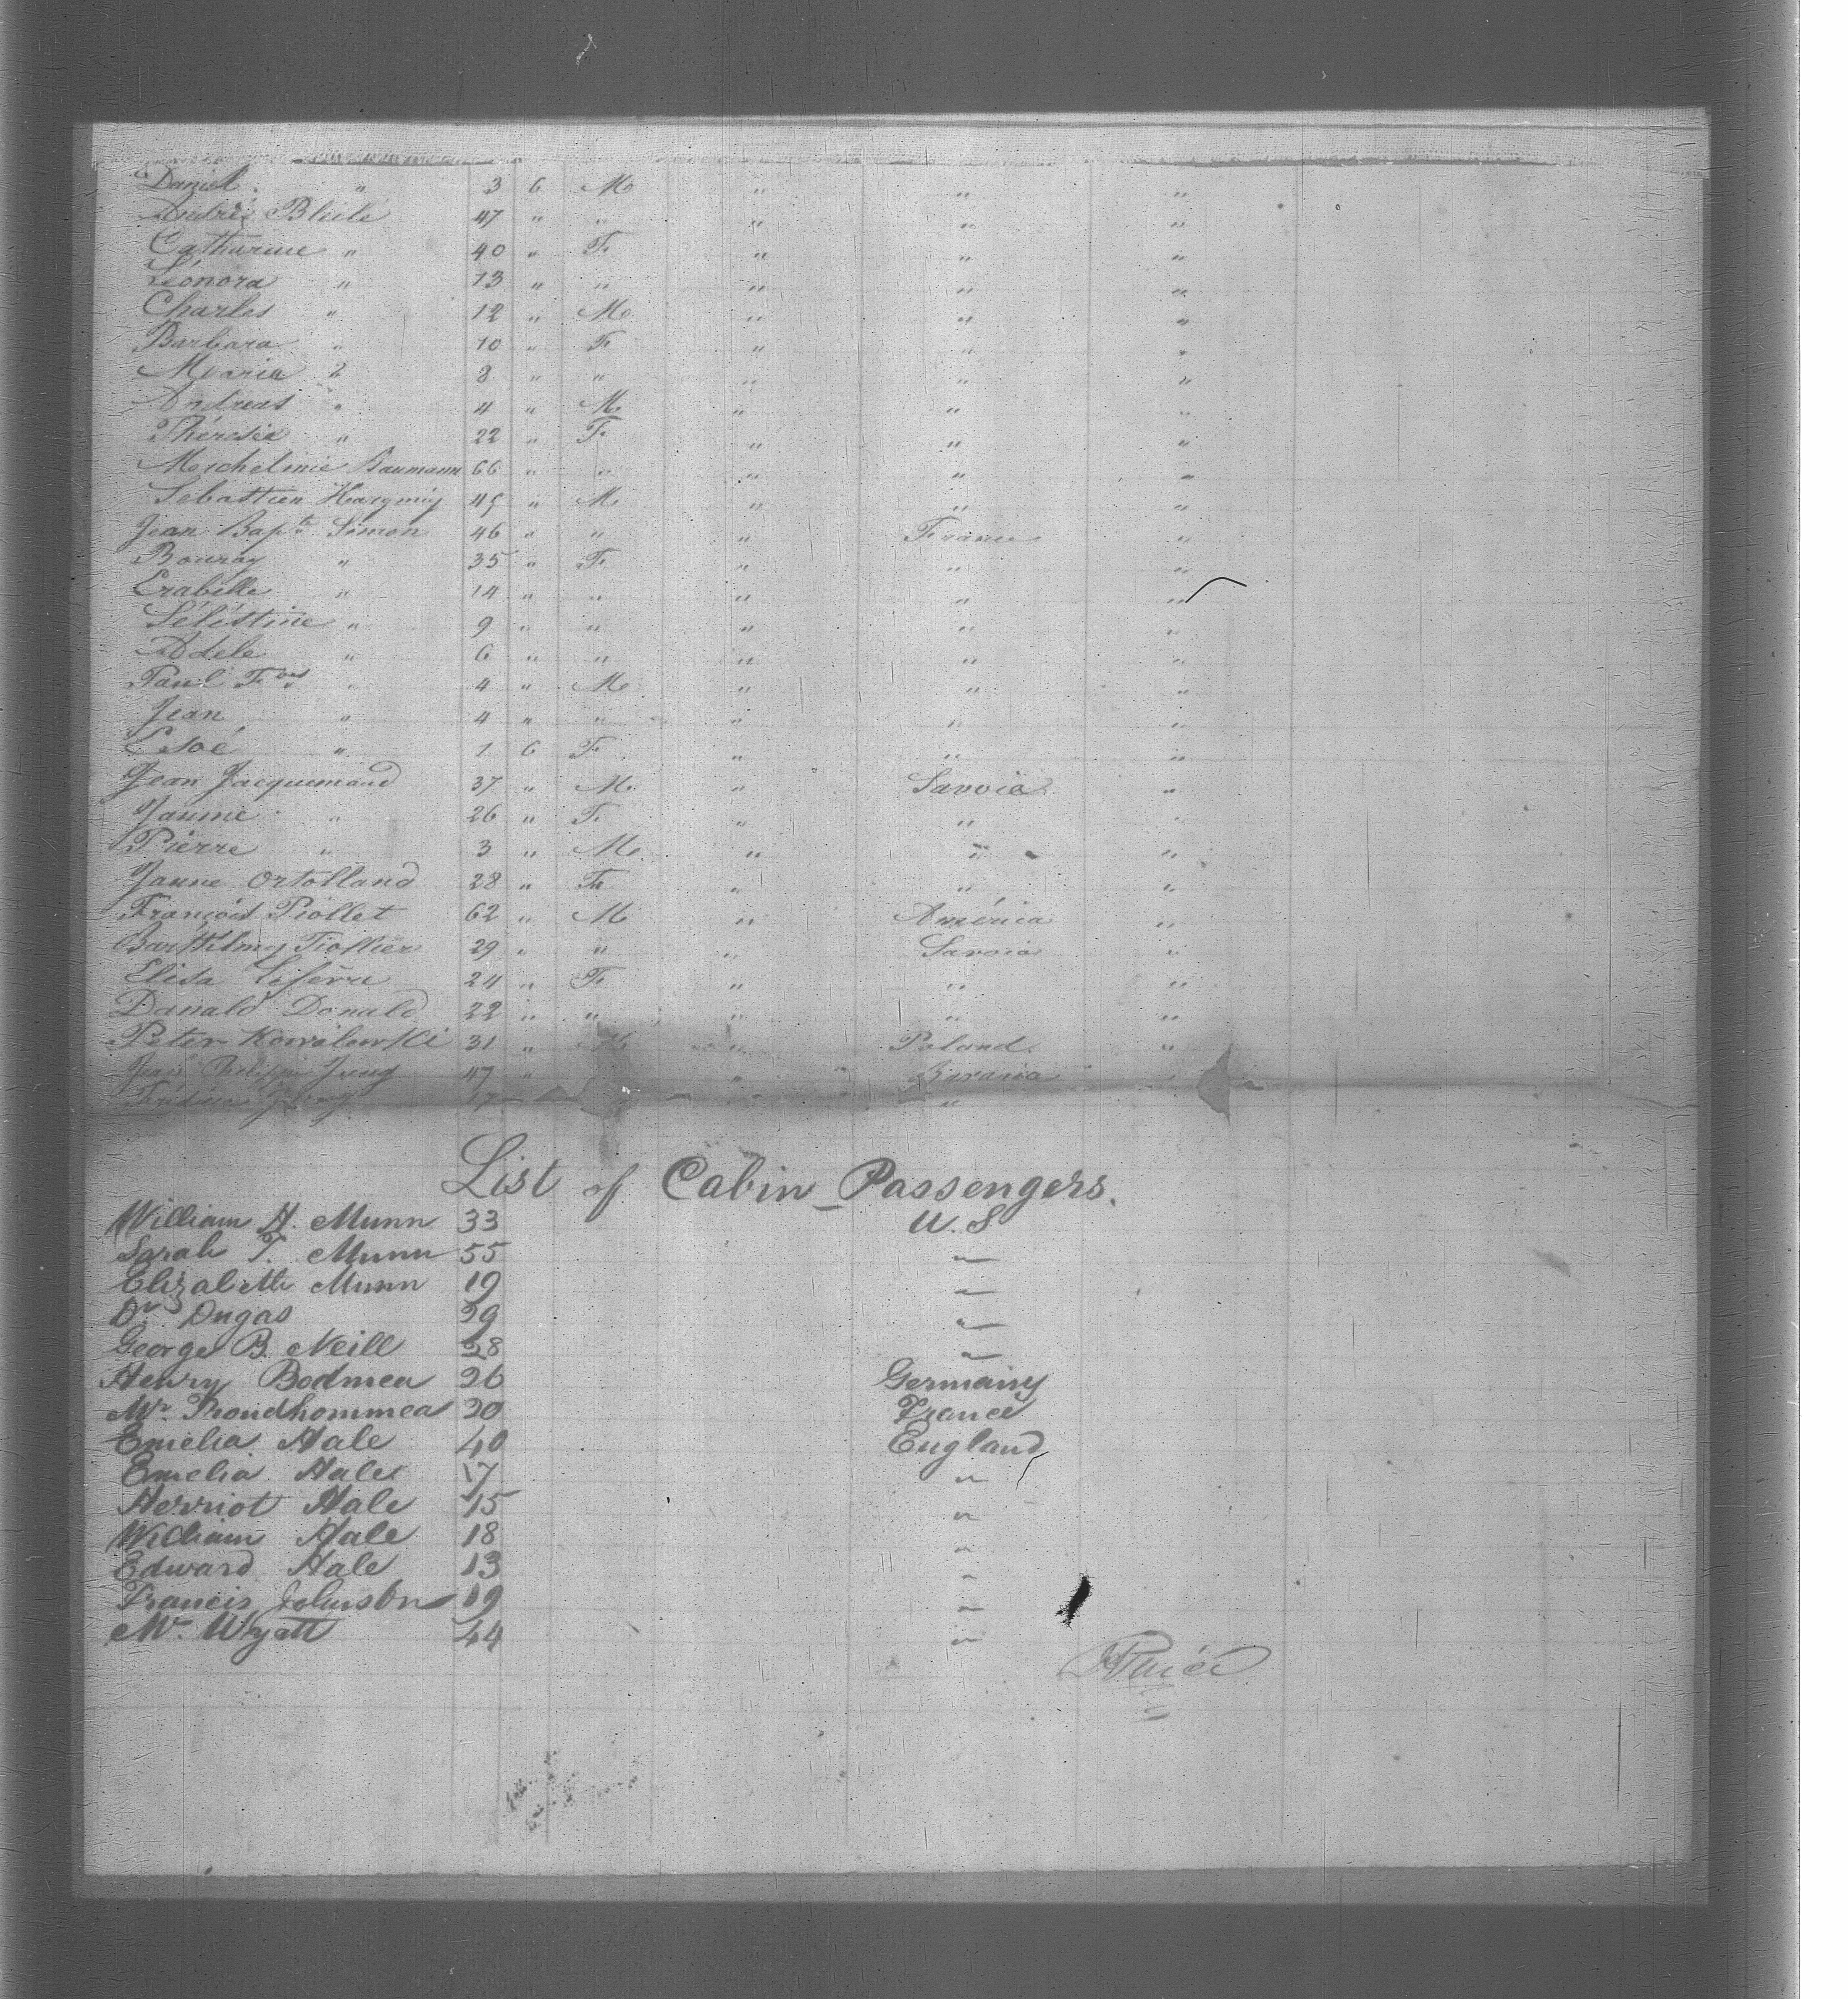 Daniel " 3 6 M " " "
André Bluilé 47 " " " " "
Catharine " 40 " F " " "
Léonora " 13 " " " " "
Charles " 12 " M " " "
Barbara " 10 " F " " "
Maria " 8 " " " " "
Andreas " 4 " M " " "
Thérésia " 22 " F " " "
Baumann 66 " " " " "
Sebastien 45 " M " " "
Jean Bapte Simon 46 " " " France "
Bouray " 35 " F " " "
Erabelle " 14 " " " " "
Séléstine " 9 " " " " "
Adéle " 6 " " " " "
Paul Fois " 4 " M " " "
Jean " 4 " " " " "
" 1 6 F " " "
Jean Jacquemand 37 " M " Savoia "
Janme " 26 " F " " "
Pierre " 3 " M " " "
Janne Ortolland 28 " F " " "
François Piollet 62 " M " América "
Barthélmy 29 " " " Savoia "
Elisa 24 " F " " "
Danald Donald 22 " " " " "
Peter Kowalewski 31 " M " Poland "
Jean Philippe Jung 47 " " Bavaria "
Jung 17 "
List of Cabin Passengers.
William H. Munn 33 U.S
Sarah T. Munn 55 "
Elizabeth Munn 19 "
Dr Dugas 29 "
George B. Neill 28 "
Henry Bodmea 26 Germany
Mr. Proudhommea 20 France
Emelia Hale 40 England
Emelia Hale 17 "
Herriot Hale 15 "
William Hale 18 "
Edward Hale 13 "
Francis Johnston 19 "
Mr. Wyatt 44 "